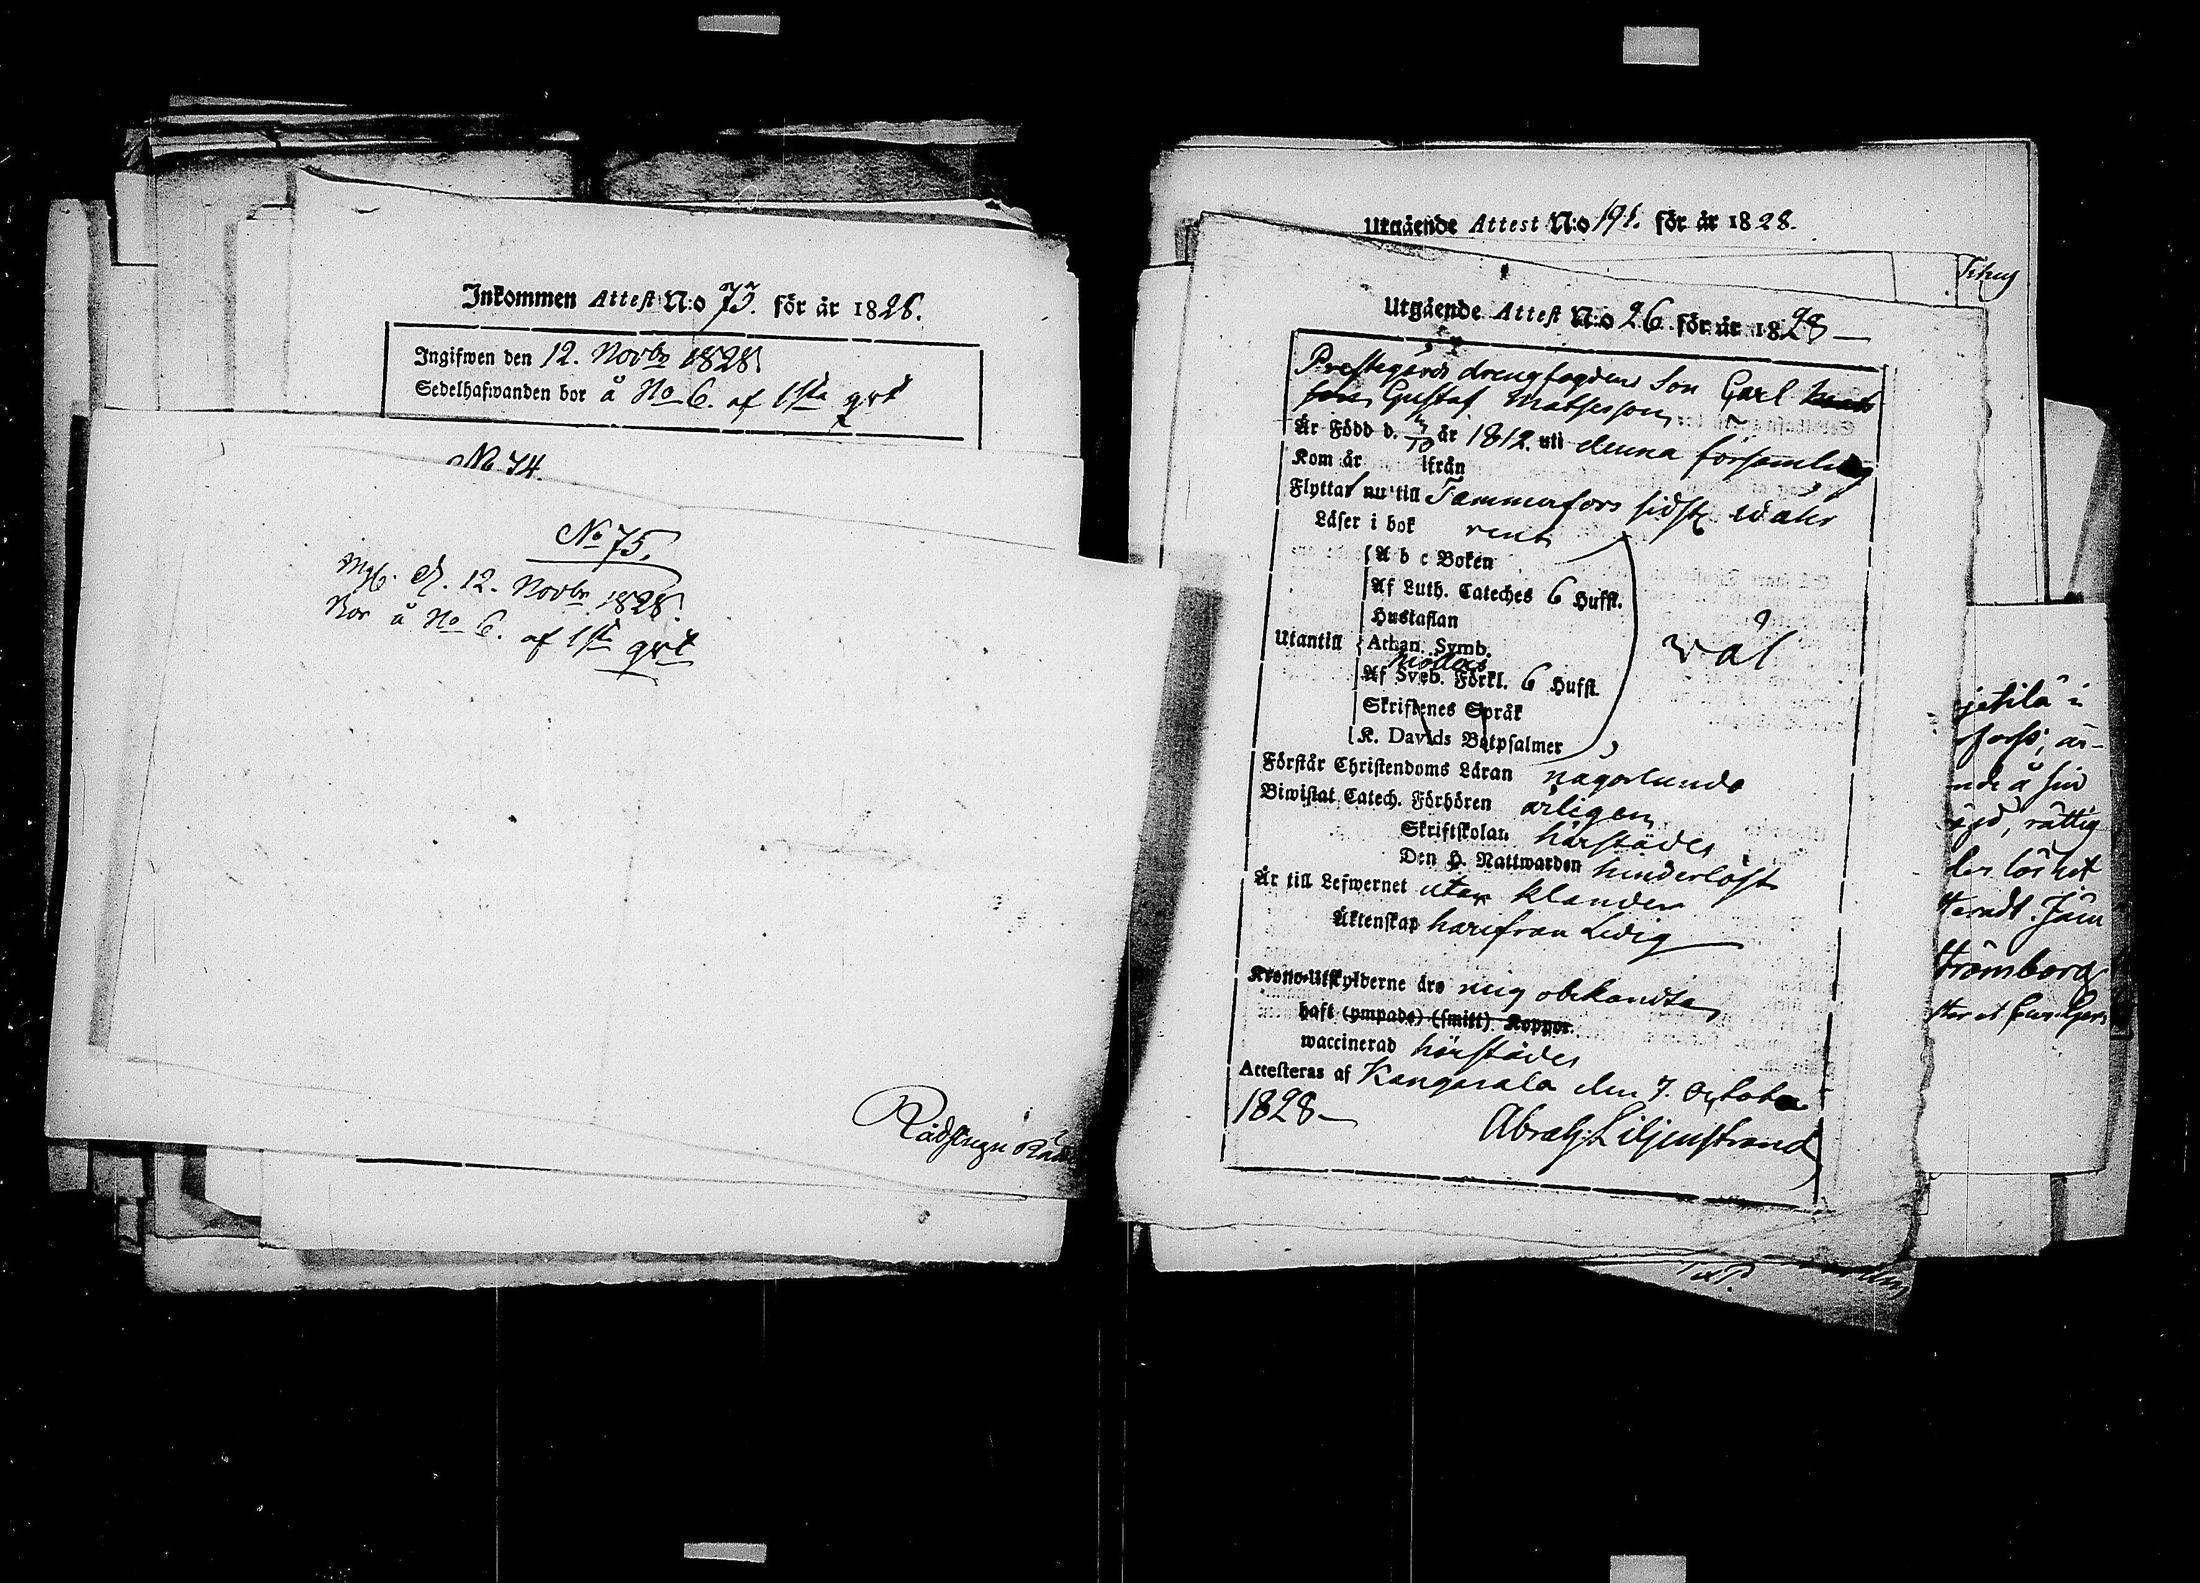 Inkommen Attest N:o 73. för år 1828.
Ingifwen den 12. Novbr 1828.
Sedelhafwanden bor å No 6. af 1sta qrt
No 74.
No 75.
d. 12. Novbr 1828.
Bor å No 6. af 1sta qrt
Utgående Attest N:o 191. för år 1828.
Utgående Attest N:o 26 för år 1828
Prestegårds drengfogdens Son Carl
Gustaf Matsson
Är Född d. år 1812. uti denna församling
Kom år ifrån
Flyttar nu till Tammerfors sidst
Läser i bok rent
A b c Boken
Af Luth. Cateches 6 Hufst.
Hustaflan
Utantill Athan. Symb.
Af Sveb. Förkl. 6 Hufst.
Skriftenes Språk
K. Davids Botpsalmer
väl
Förstår Christendoms Läran någorlunda
Biwistat Catech. Förhören årligen
Skriftskolan härstädes
Den H. Nattwarden hinderlöst
Är till Lefwernet utan klander
Äktenskap härifrån Ledig
Krono-Utskylderne äro mig obekandta
haft (ympade) (smitt) Koppor.
waccinerad härstädes
Attesteras af Kangasala den 7. October
1828
Abrah: Liljenstrand
jetila i
forss; är-
nde å sin
rättig